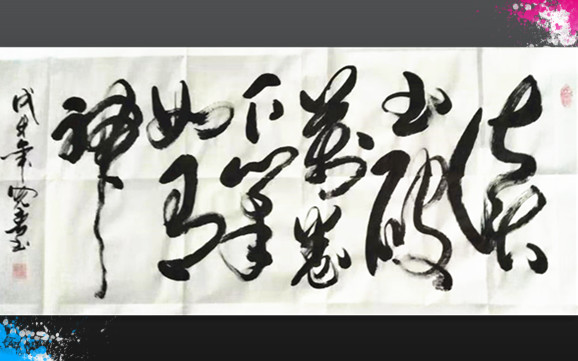 读
书破
萬卷
下笔
如有
神
戊戌年
书